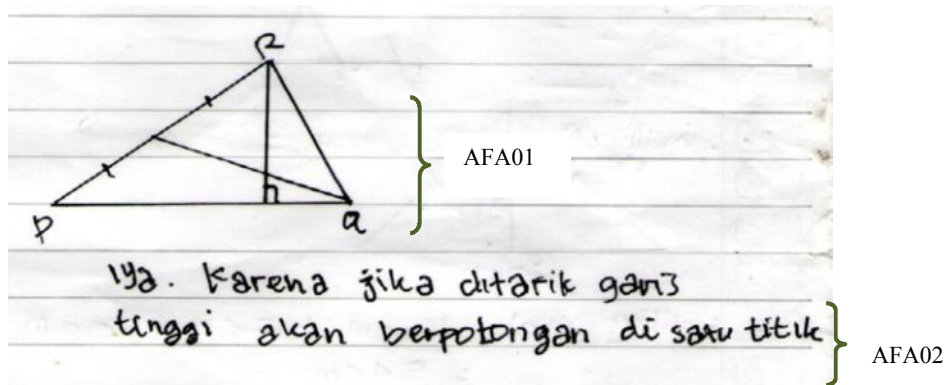 R
AFA01
P
Q
Iya. Karena jika ditarik garis
tinggi akan berpotongan di satu titik
AFA02